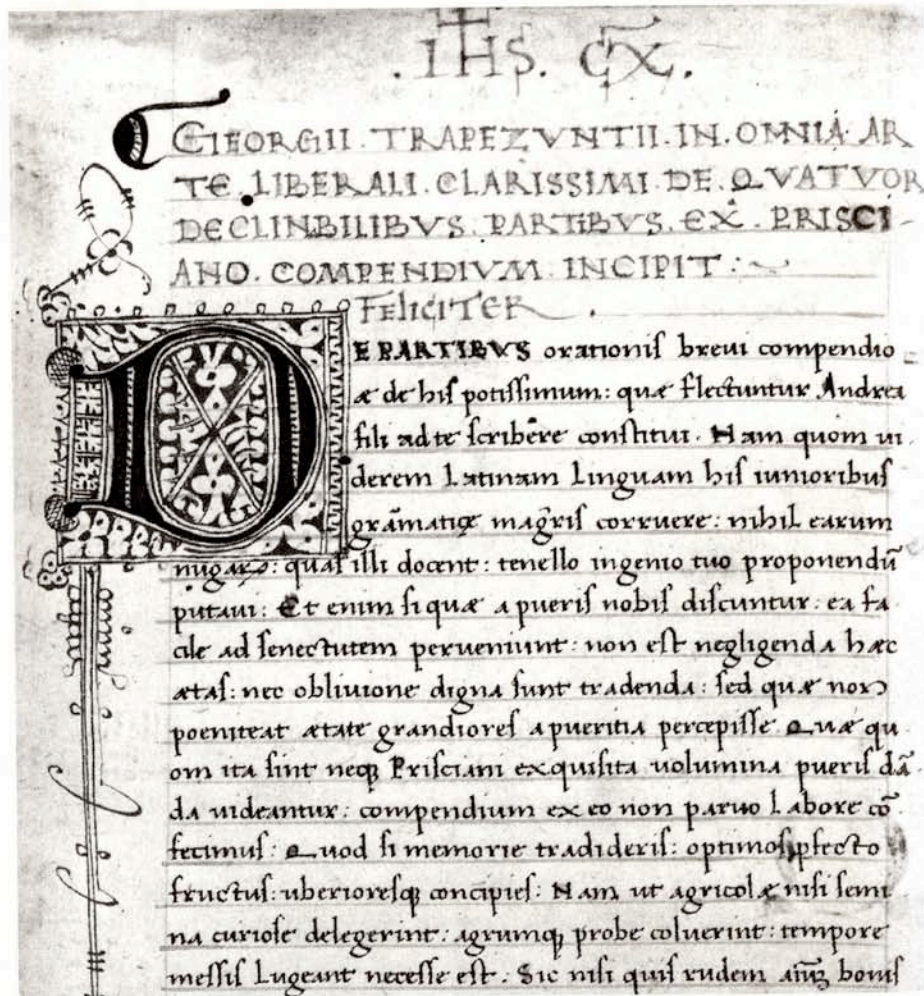 .IHS. CX̄.
GEORGII. TRAPEZVNTII. IN. OMNIA. AR
TE. LIBERALI. CLARISSIMI. DE. QVATVOR
DECLINBILIBVS. PARTIBVS. EX. PRISCI
ANO. COMPENDIVM. INCIPIT :~
FELICITER.
DE PARTIBVS orationis brevi compendio
æ de his potissimum: quæ flectuntur Andrea
fili ad te scribere constitui. Nam quom ui
derem Latinam Linguam his iunioribus
grāmaticę magr̄is corruere: nihil earum
nugaꝝ: quas illi docent: tenello ingenio tuo proponendū
putaui: Et enim si quæ a pueris nobis discuntur: ea fa
cile ad senectutem perueniunt: non est negligenda hæc
ætas: nec obliuione digna sunt tradenda: sed quæ non
poeniteat ætate grandiores a pueritia percepisse Quæ qu
om ita sint neqꝫ Prisciani exquisita uolumina pueris dā
da uideantur: compendium ex eo non paruo Labore cō
fecimus: Quod si memorie tradideris: optimos ꝓfecto
fructus: uberioresqꝫ concipies: Nam ut agricolæ nisi semi
na curiose delegerint: agrumqꝫ probe coluerint: tempore
messis Lugeant necesse est. Sic nisi quis rudem aīuꝫ bonis